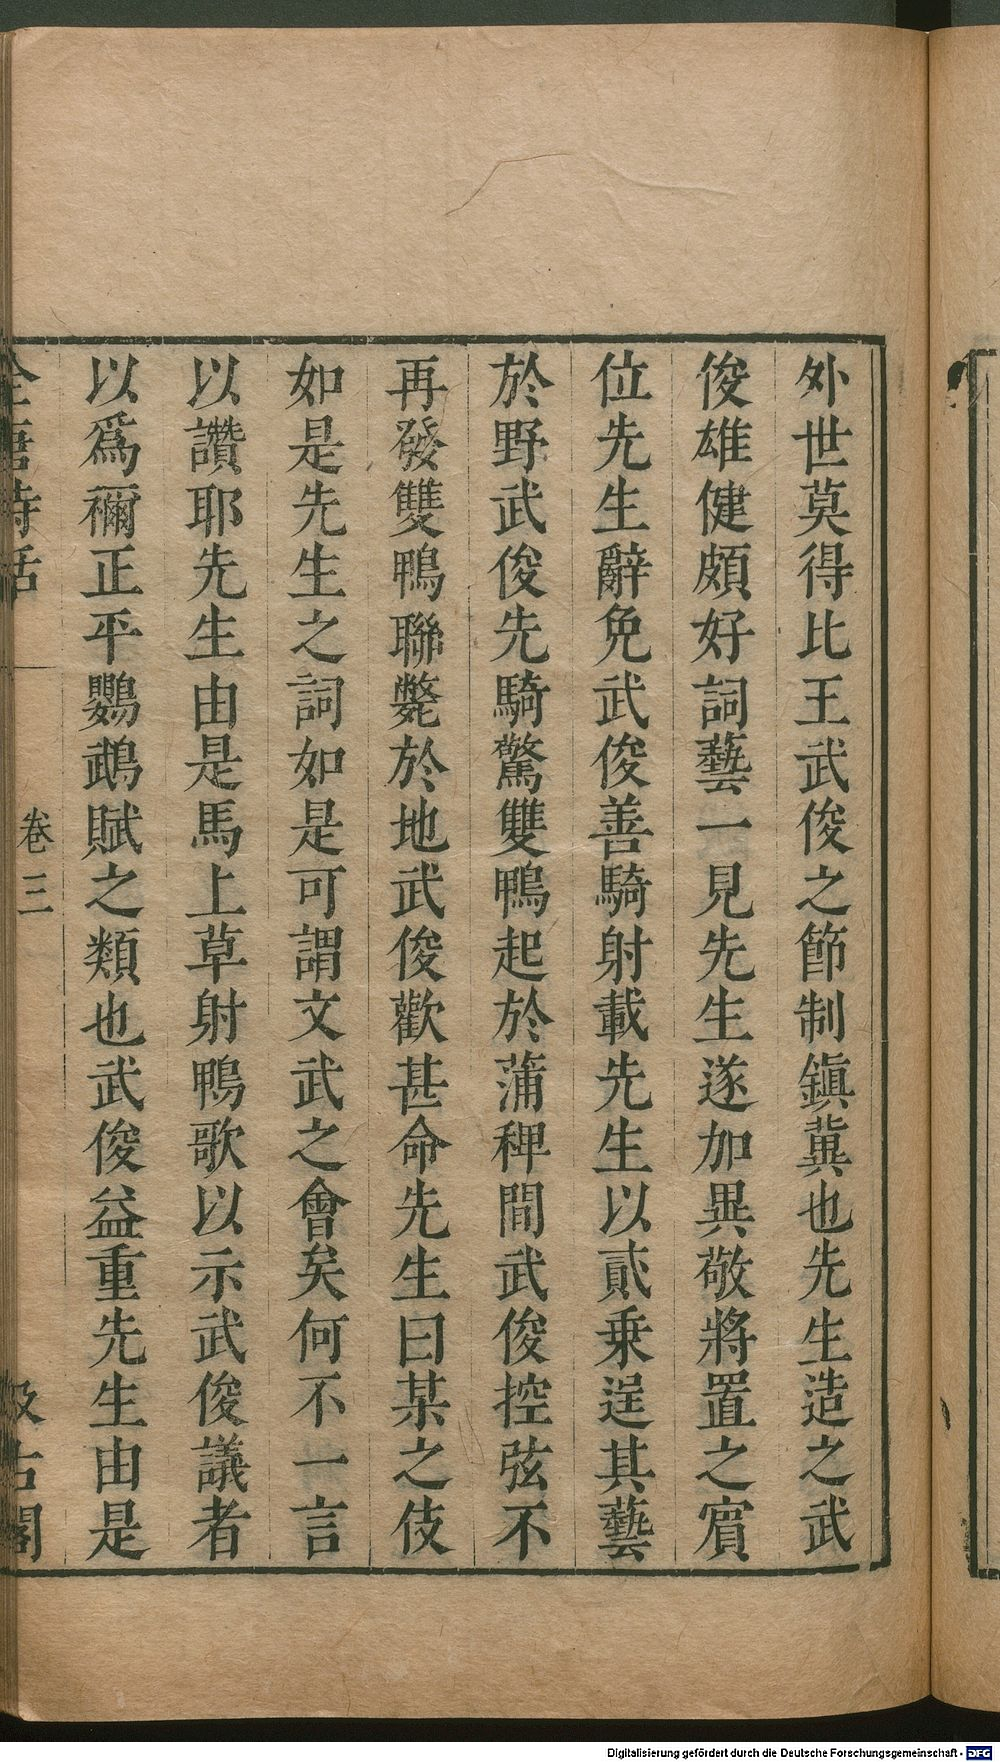 外世莫得比王武俊之節制鎮冀也先生造之武
俊雄健頗好詞藝一見先生遂加異敬將置之賓
位先生辭免武俊善騎射載先生以貳乗逞其藝
於野武俊先騎驚雙鴨起於蒲稗間武俊控弦不
再發雙鴨聯斃於地武俊歡甚命先生曰某之伎
如是先生之詞如是可謂文武之會矣何不一言
以讚耶先生由是馬上草射鴨歌以示武俊議者
以爲禰正平鸚鵡賦之類也武俊益重先生由是
全唐詩話
卷三
汲古閣
Digitalisierung gefördert durch die Deutsche Forschungsgemeinschaft - DFG